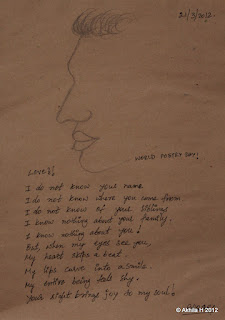 21/3/2012
WORLD POETRY DAY!
LOVE!!
I do not know your name
I do not know where you come from
I do not know of your siblings
I know nothing about your family.
I know nothing about you!
But, when my eyes see you,
My heart skips a beat
My lips curve into a smile.
My entire being feels shy.
Your sight brings joy to my soul!
© Akhila H 2012